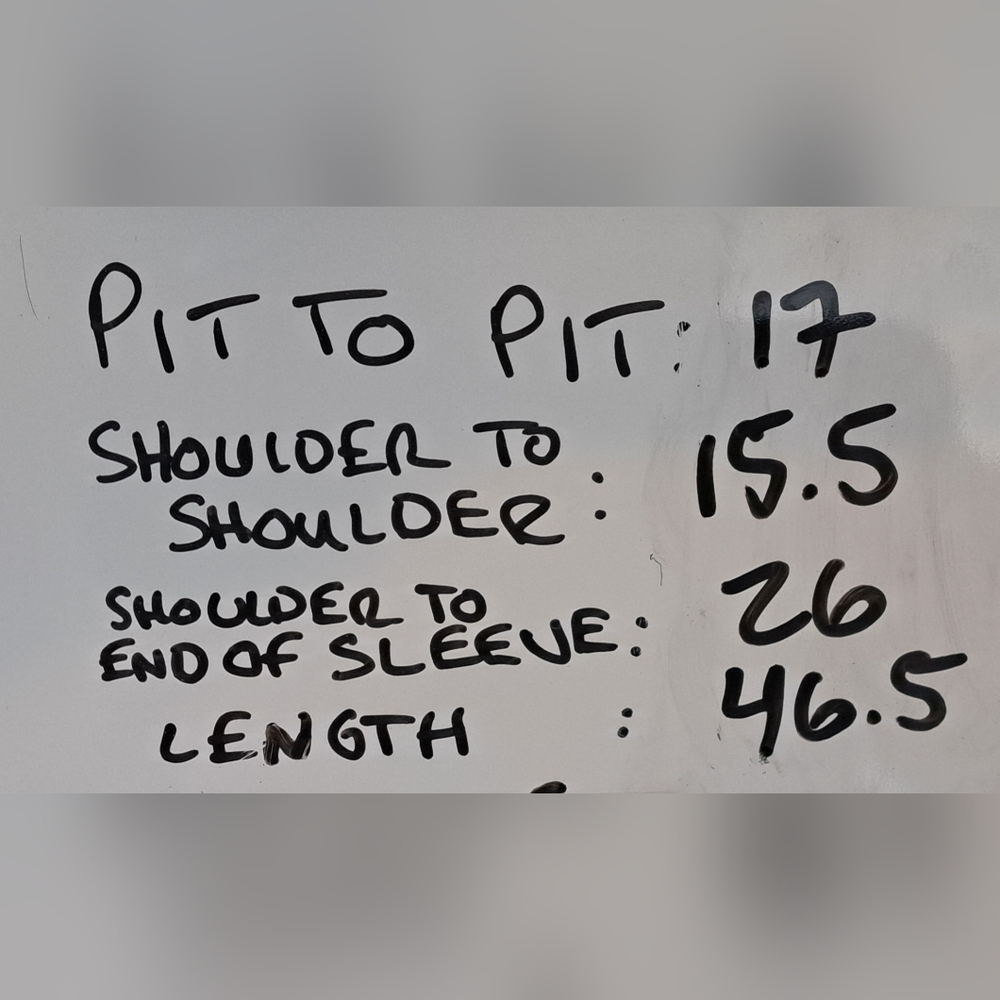 PIT TO PIT: 17
SHOULDER TO
SHOULDER : 15.5
SHOULDER TO
END OF SLEEVE: 26
LENGTH : 46.5